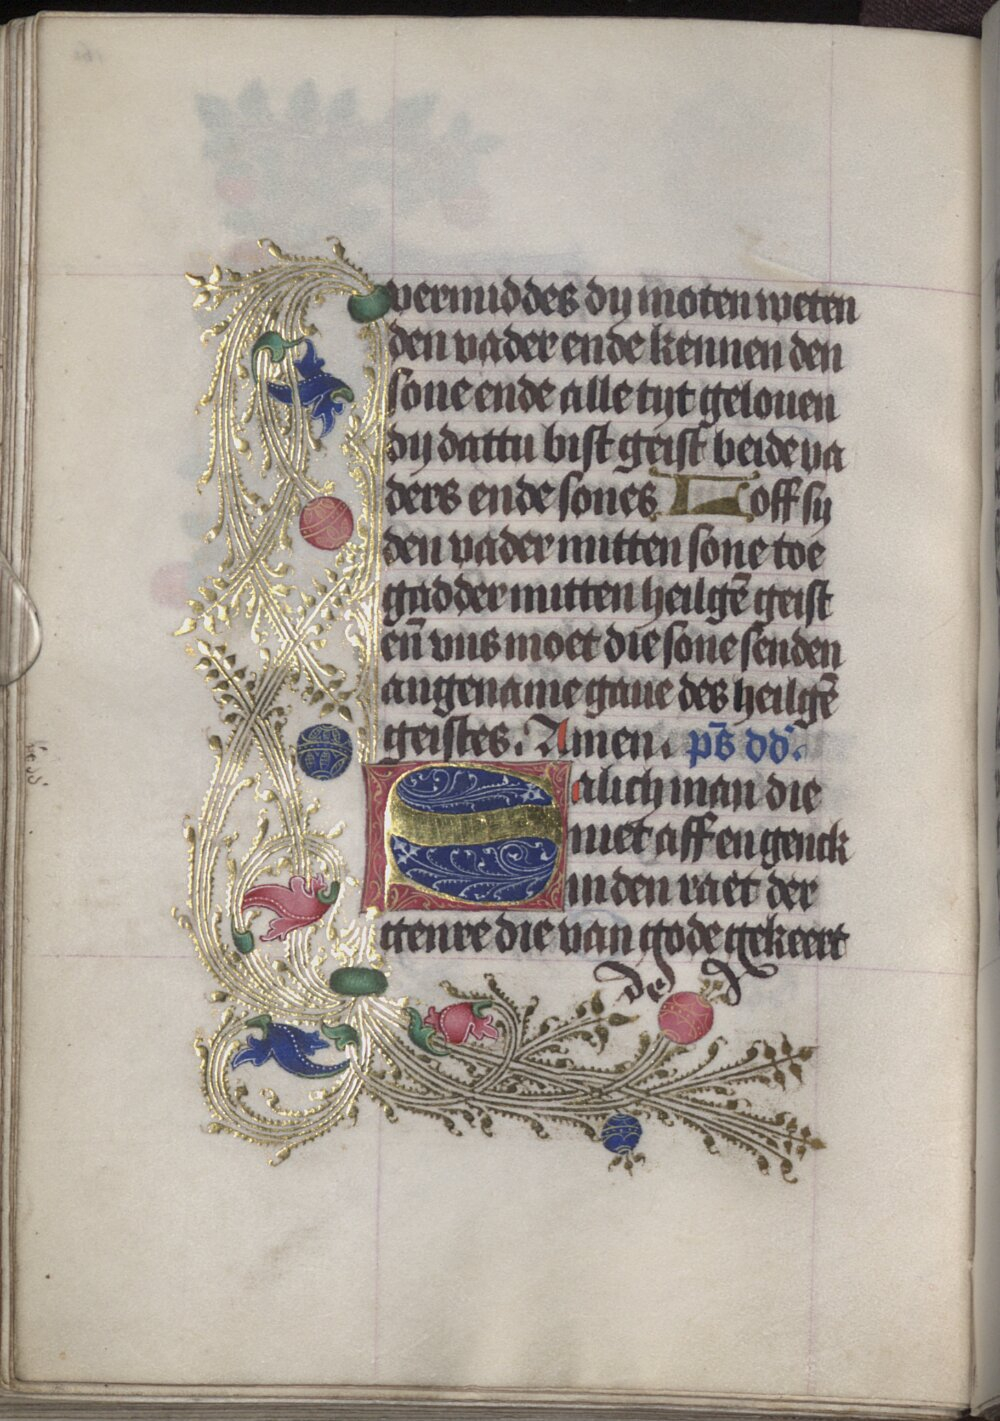 vermiddes dy moten weten
den vader ende kennen den
sone ende alle tijt gelouen
dy dattu bist geist beide va
ders ende sones Loff sy
den vader mitten sone toe
gadder mitten heilgē geist
eñ vns moet die sone senden
angename gaue des heilgē
geistes. Amen. ps̄ dd.
Salich man die
niet aff en genck
in den raet der
genre die van gode gekeert